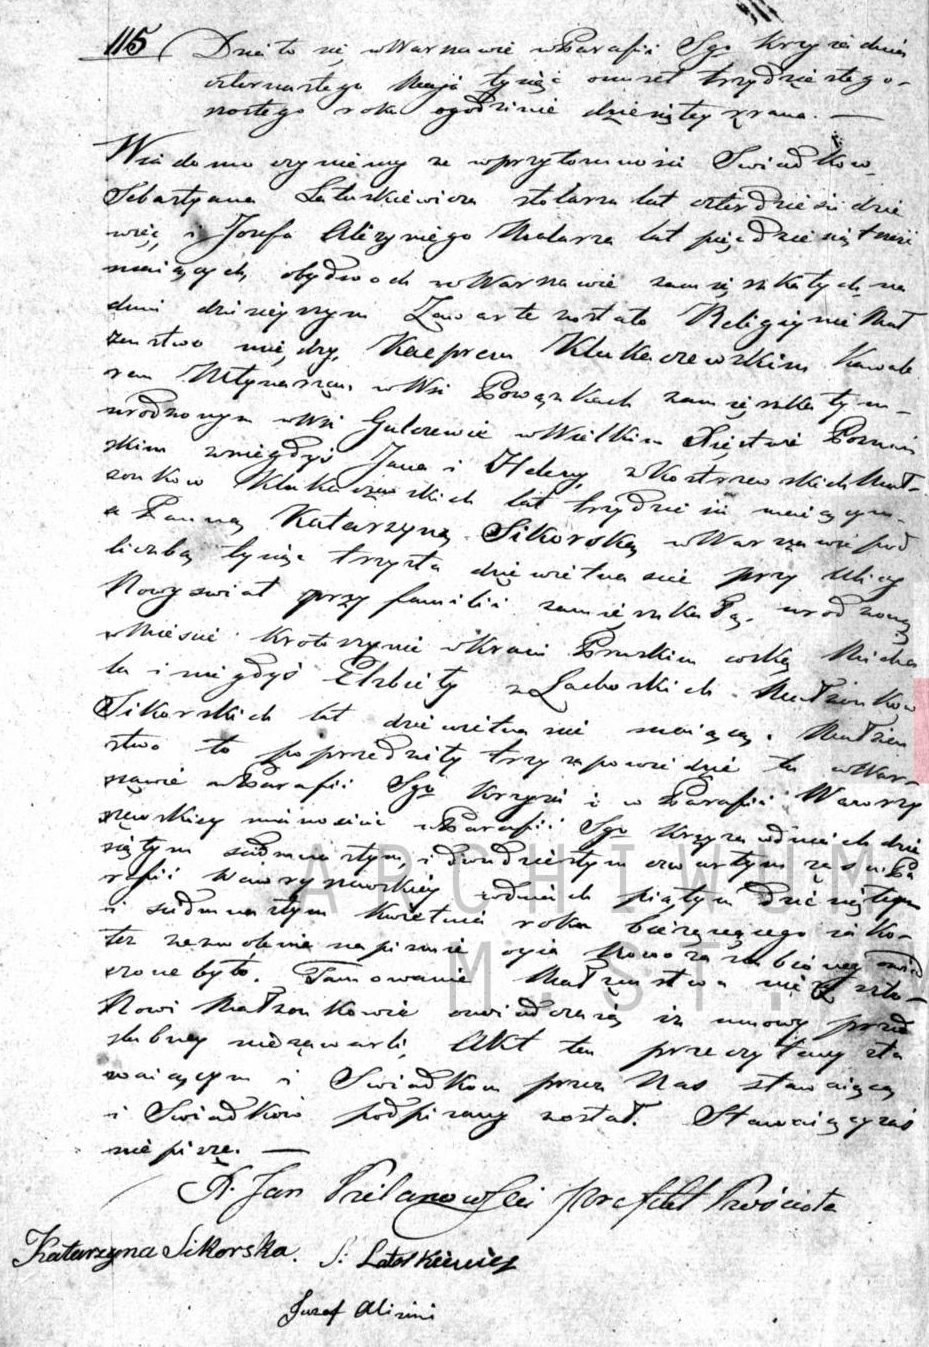 115 Działo się w Warszawie w Parafii Sgo Krzyża dnia
czternastego Maja tysiąc osmset trzydziestego
szostego roku o godzinie dziesiątey z rana. —
Wiadomo czyniemy że w przytomności Swiadków
Sebastyana Latuskiewicza stolarza lat czterdzieści dzie
więć, i Jozefa Malarza lat pięćdziesiąt
maiących, obydwoch w Warszawie zamięszkałych, na
dniu dzisieyszym Zawarte zostało Religiyne Mał
żenstwo między, Kacprem Klukaczewskim Kawale
rem Młynarzem w Wsi Powązkach zamięszkałym
urodzonym w Wsi w Wielkim Xięstwie Poznań
skim z niegdyś Jana i Heleny, z Kostrzewskich Mał
żonkow Klukaczewskich lat trzydzieści maiącym.
a Panną Katarzyną Sikorską w Warszawie pod
liczbą tysiąc trzysta dziewietnaście przy Ulicy
Nowy swiat przy familii zamięszkałą, urodzoną
w Mieście Krotoszynie w Kraiu Pruskim corką Micha
ła i niegdyś Elzbiety z Lachorskich Małżonkow
Sikorskich lat dziewietnaście maiącą. Małżeń
stwo to poprzedziły trzy zapowiedzie tu w War
szawie w Parafii Sgo Krzyża i w Parafii Wawrzy
szewskiey mianowicie w Parafii Sgo Krzyża w dniach dzie
siątym siedmnastym, i dwudziestym czwartym zaś w Pa
rafii Wawrzyszewskiey w dniach piątym dziesiątym
i siedmnastym Kwietnia roku bieżącego iako
też zezwolenie na pismie oyca
szone było. Tamowanie Małżeństwa nie zaszło
Nowi Małżonkowie oswiadczaią iż umowy przed
slubney niezawarli, Akt ten przeczytany sta
waiącym i Swiadkom przez Nas stawaiącą
i Swiadków podpisany został. Stawaiący zaś
nie pisze. —
X. Jan
Katarzyna Sikorska. S: Latoskiewicz
Juzef
ARCHIWUM
M. ST. W